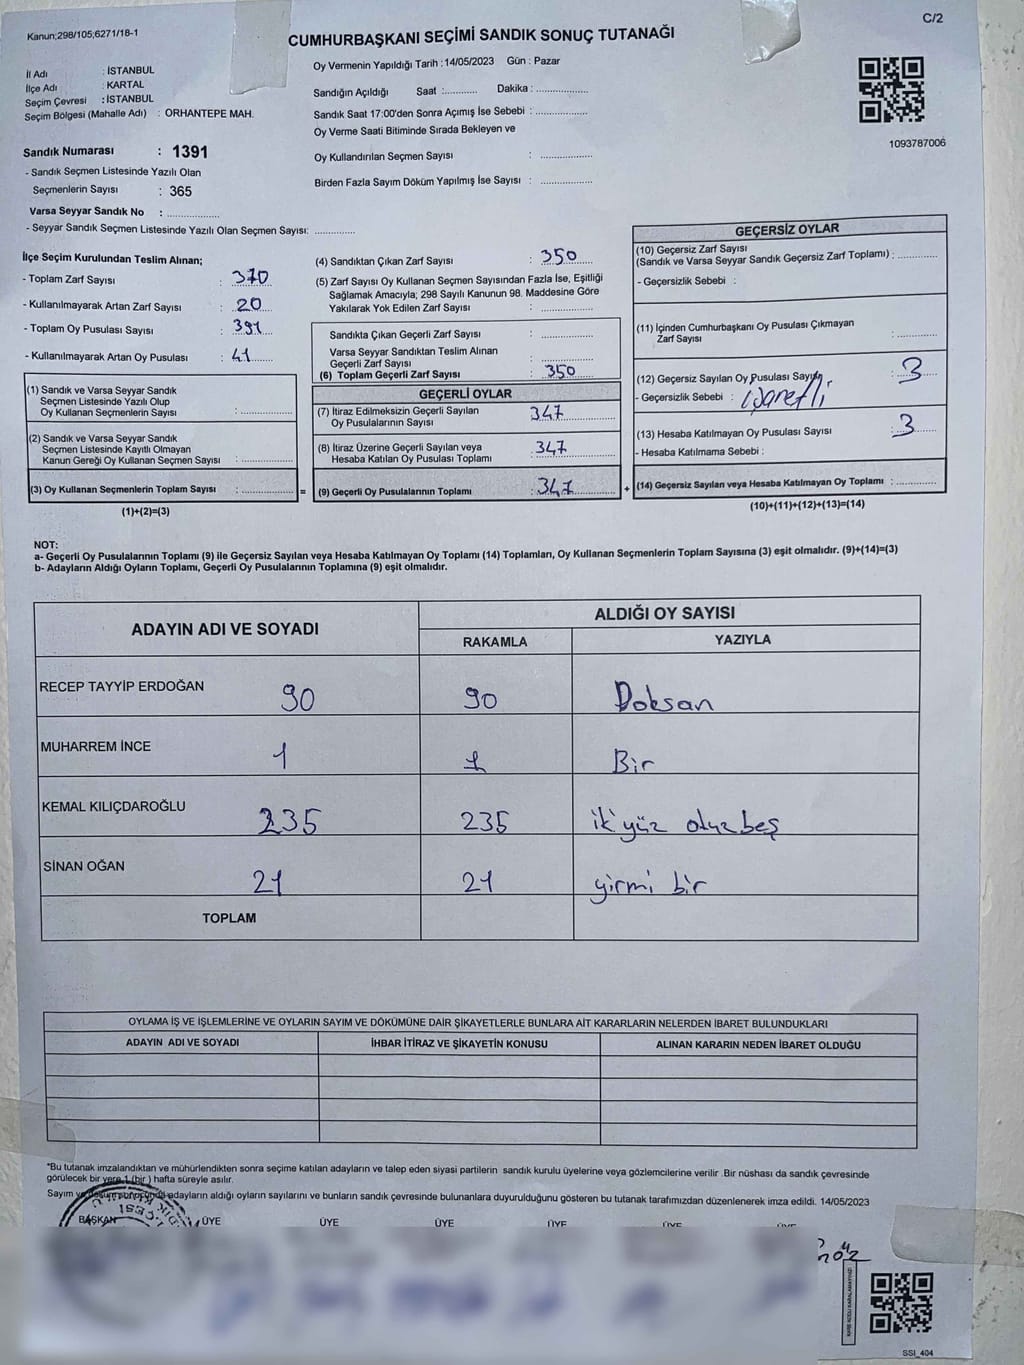 Kanun;298/105;6271/18-1
C/2
CUMHURBAŞKANI SEÇİMİ SANDIK SONUÇ TUTANAĞI
İl Adı : İSTANBUL
İlçe Adı : KARTAL
Seçim Çevresi : İSTANBUL
Seçim Bölgesi (Mahalle Adı) : ORHANTEPE MAH.
Sandık Numarası : 1391
- Sandık Seçmen Listesinde Yazılı Olan
Seçmenlerin Sayısı : 365
Varsa Seyyar Sandık No : ...................
- Seyyar Sandık Seçmen Listesinde Yazılı Olan Seçmen Sayısı: ..............
Oy Vermenin Yapıldığı Tarih :14/05/2023 Gün : Pazar
Sandığın Açıldığı Saat :........... Dakika : ..................
Sandık Saat 17:00'den Sonra Açımış İse Sebebi : ..................
Oy Verme Saati Bitiminde Sırada Bekleyen ve
Oy Kullandırılan Seçmen Sayısı : ..................
Birden Fazla Sayım Döküm Yapılmış İse Sayısı : ..................
1093787006
İlçe Seçim Kurulundan Teslim Alınan;
- Toplam Zarf Sayısı : 370
- Kullanılmayarak Artan Zarf Sayısı : 20
- Toplam Oy Pusulası Sayısı : 391
- Kullanılmayarak Artan Oy Pusulası : 41
(1) Sandık ve Varsa Seyyar Sandık
Seçmen Listesinde Yazılı Olup
Oy Kullanan Seçmenlerin Sayısı : ..................
(2) Sandık ve Varsa Seyyar Sandık
Seçmen Listesinde Kayıtlı Olmayan
Kanun Gereği Oy Kullanan Seçmen Sayısı : ..................
(3) Oy Kullanan Seçmenlerin Toplam Sayısı : .................. =
(1)+(2)=(3)
(4) Sandıktan Çıkan Zarf Sayısı : 350
(5) Zarf Sayısı Oy Kullanan Seçmen Sayısından Fazla İse, Eşitliği
Sağlamak Amacıyla; 298 Sayılı Kanunun 98. Maddesine Göre
Yakılarak Yok Edilen Zarf Sayısı : ..................
Sandıkta Çıkan Geçerli Zarf Sayısı : ..................
Varsa Seyyar Sandıktan Teslim Alınan
Geçerli Zarf Sayısı : ..................
(6) Toplam Geçerli Zarf Sayısı : 350
GEÇERLİ OYLAR
(7) İtiraz Edilmeksizin Geçerli Sayılan
Oy Pusulalarının Sayısı : 347
(8) İtiraz Üzerine Geçerli Sayılan veya
Hesaba Katılan Oy Pusulası Toplamı : 347
(9) Geçerli Oy Pusulalarının Toplamı : 347 +
GEÇERSİZ OYLAR
(10) Geçersiz Zarf Sayısı
(Sandık ve Varsa Seyyar Sandık Geçersiz Zarf Toplamı) : ..............
- Geçersizlik Sebebi :
(11) İçinden Cumhurbaşkanı Oy Pusulası Çıkmayan
Zarf Sayısı : ..............
(12) Geçersiz Sayılan Oy Pusulası Sayısı : 3
- Geçersizlik Sebebi : işaretli
(13) Hesaba Katılmayan Oy Pusulası Sayısı : 3
- Hesaba Katılmama Sebebi :
(14) Geçersiz Sayılan veya Hesaba Katılmayan Oy Toplamı : ..............
(10)+(11)+(12)+(13)=(14)
NOT:
a- Geçerli Oy Pusulalarının Toplamı (9) ile Geçersiz Sayılan veya Hesaba Katılmayan Oy Toplamı (14) Toplamları, Oy Kullanan Seçmenlerin Toplam Sayısına (3) eşit olmalıdır. (9)+(14)=(3)
b- Adayların Aldığı Oyların Toplamı, Geçerli Oy Pusulalarının Toplamına (9) eşit olmalıdır.
ADAYIN ADI VE SOYADI ALDIĞI OY SAYISI
RAKAMLA YAZIYLA
RECEP TAYYİP ERDOĞAN 90 90 Doksan
MUHARREM İNCE 1 1 Bir
KEMAL KILIÇDAROĞLU 235 235 ikiyüz otuzbeş
SİNAN OĞAN 21 21 yirmi bir
TOPLAM
OYLAMA İŞ VE İŞLEMLERİNE VE OYLARIN SAYIM VE DÖKÜMÜNE DAİR ŞİKAYETLERLE BUNLARA AİT KARARLARIN NELERDEN İBARET BULUNDUKLARI
ADAYIN ADI VE SOYADI İHBAR İTİRAZ VE ŞİKAYETİN KONUSU ALINAN KARARIN NEDEN İBARET OLDUĞU
*Bu tutanak imzalandıktan ve mühürlendikten sonra seçime katılan adayların ve talep eden siyasi partilerin sandık kurulu üyelerine veya gözlemcilerine verilir .Bir nüshası da sandık çevresinde
görülecek bir yere 1 (bir ) hafta süreyle asılır.
Sayım ve döküm sonucunda adayların aldığı oyların sayılarını ve bunların sandık çevresinde bulunanlara duyurulduğunu gösteren bu tutanak tarafımızdan düzenlenerek imza edildi. 14/05/2023
BAŞKAN ÜYE ÜYE ÜYE ÜYE ÜYE ÜYE
KARE KODU KARALAMAYINIZ!
SSI_404